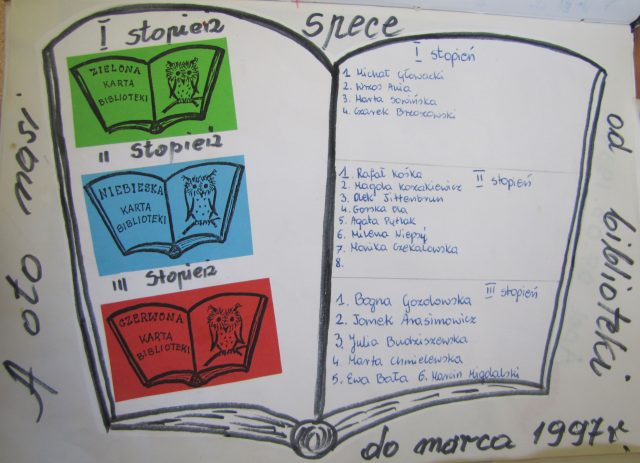 A oto nasi
spece
od biblioteki
do marca 1997r.
I stopień
ZIELONA
KARTA
BIBLIOTEKI
II stopień
NIEBIESKA
KARTA
BIBLIOTEKI
III stopień
CZERWONA
KARTA
BIBLIOTEKI
I stopień
1. Michał Głowacki
2. Wzos Ania
3. Marta
4. Czarek Brzozowski
II stopień
1. Rafał Kośka
2. Magda Kozakiewicz
3. Olek Jittenbrun
4. Gorska Ola
5. Agata Pytlak
6. Milena
7. Monika Czekalowska
8.
III stopień
1. Bogna Gozdowska
2. Tomek Arasimowicz
3. Julia Budziszewska
4. Marta Chmielewska
5. Ewa Bała 6. Marcin Migdalski